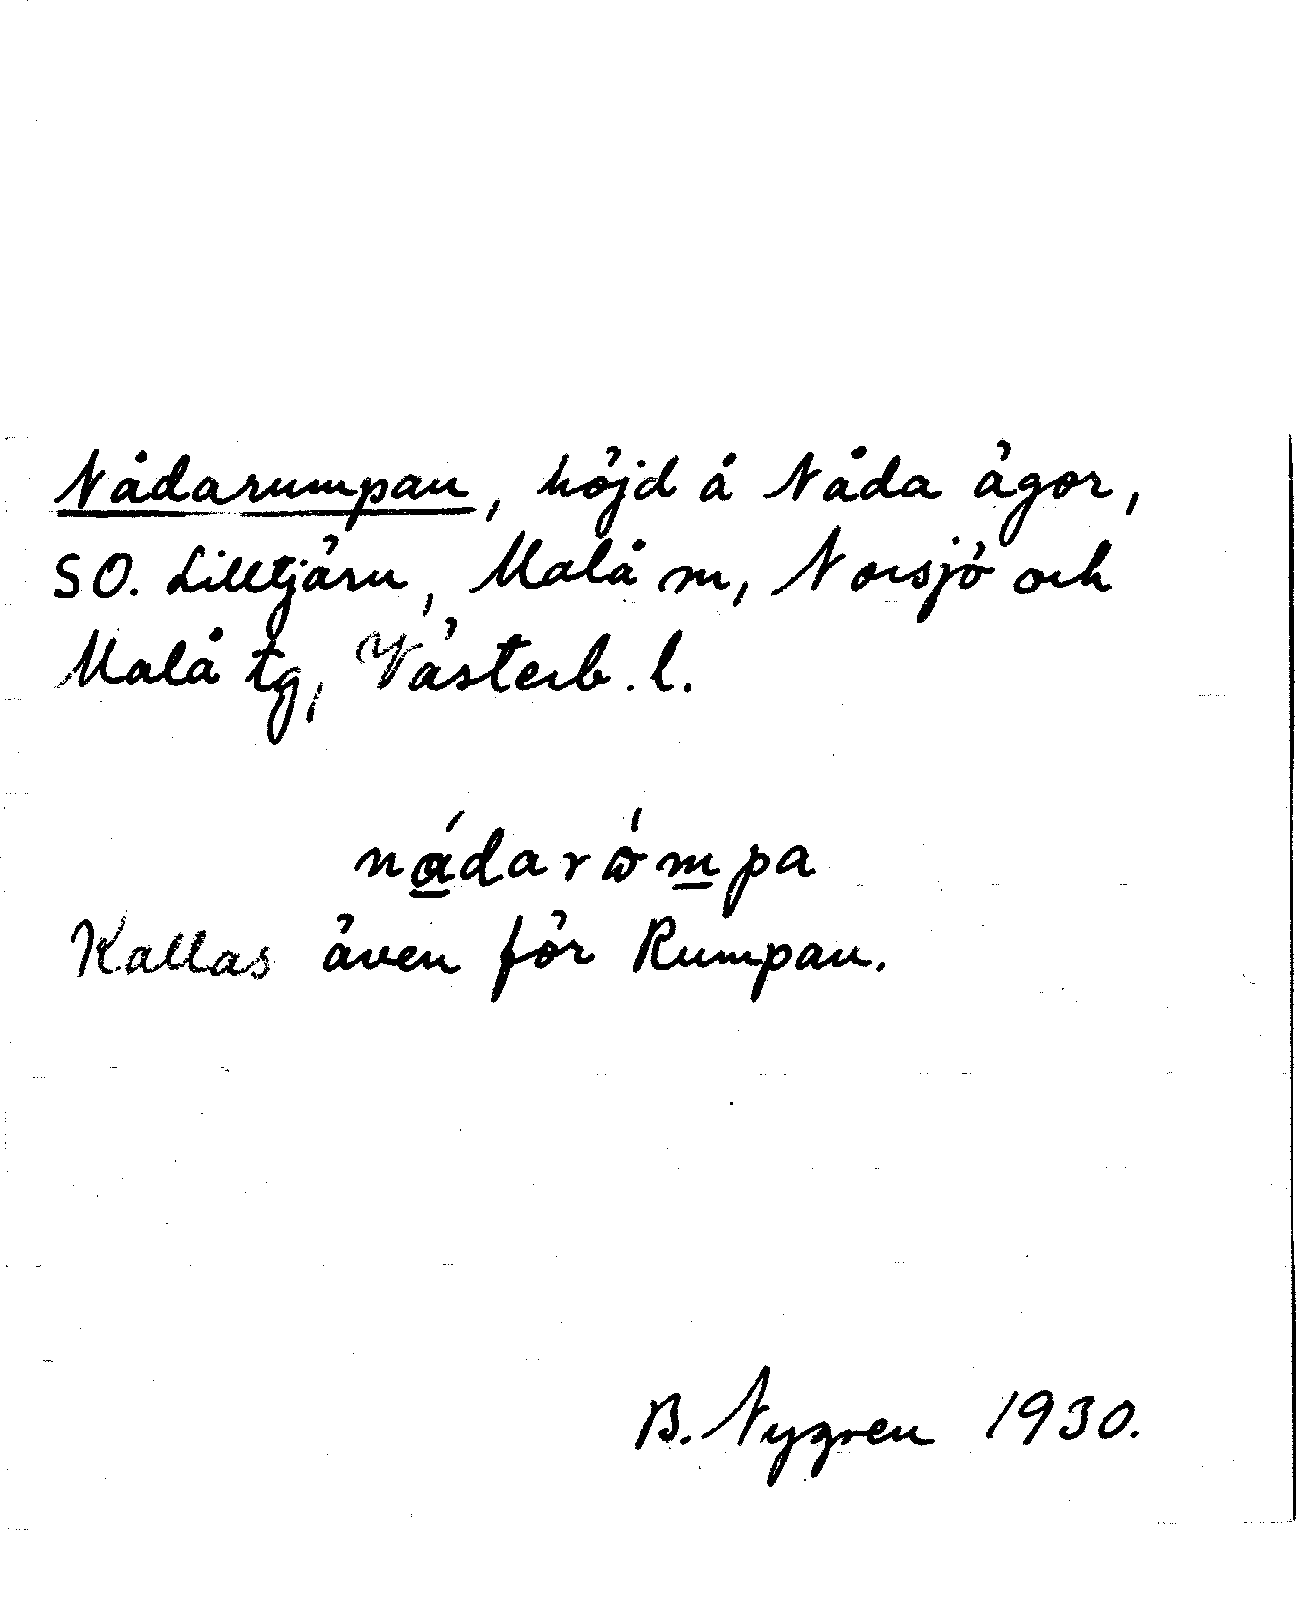 Nådarumpan, höjd å Nåda ägor,
SO. Lilltjärn, Malå sn, Norsjö och
Malå tg, Västerb. l.
nádarω̇́mpa
Kallas även för Rumpan.
B. Nygren 1930.